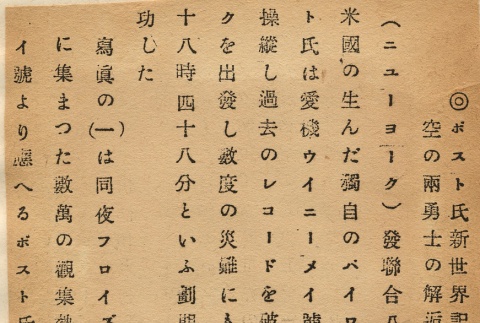 ◎ポスト氏新世界記
空の兩勇士の解返
(ニューヨーク)發聯合八
米國の生んだ獨自のパイロ
ト氏は愛機ウイニーメイ號
操縱し過去のレコードを破
クを出發し數度の災難にも
十八時四十八分といふ劃期
功した
寫眞の(一)は同夜フロイズ
に集まつた數萬の觀集
イ號より へるポスト氏